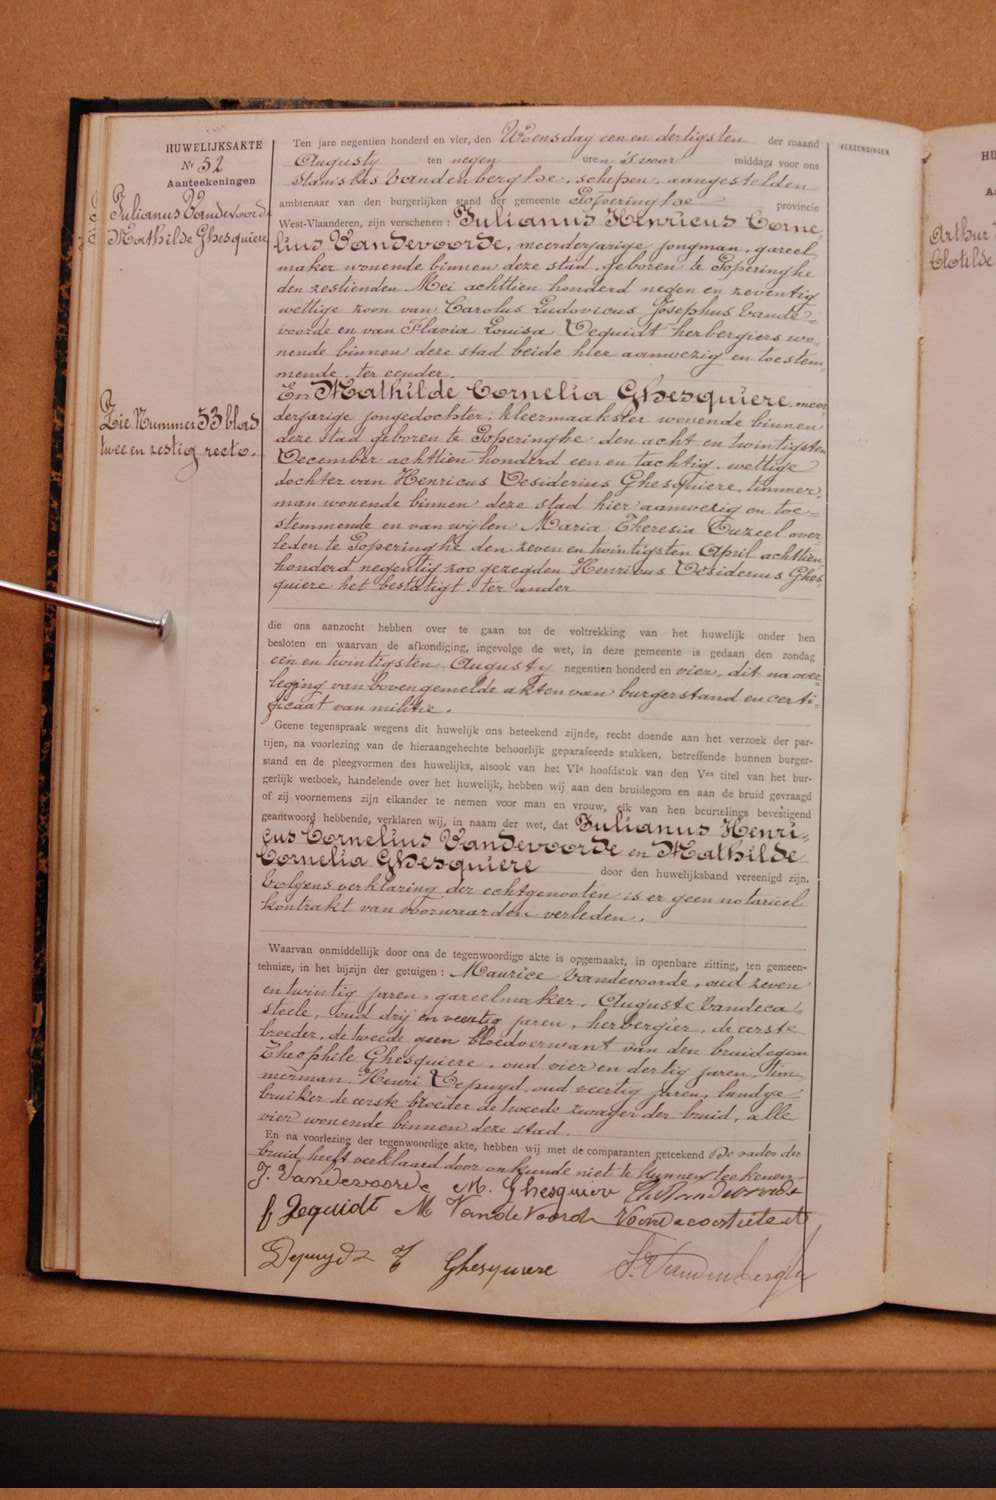 HUWELIJKSAKTE
Nr 52
Aanteekeningen
Julianus Vandevoorde
Mathilde Ghesquiere
Zie Nummer 53 blad
twee en zestig recto.
Ten jare negentien honderd en vier, den Woensdag een en dertigsten der maand
Augusty ten negen uren 's voor middag, voor ons
Stanislas Vandenberghe, schepen, aangestelden
ambtenaar van den burgerlijken stand der gemeente Poperinghe provincie
West-Vlaanderen, zijn verschenen : Julianus Henricus Corne-
lius Vandevoorde, meerderjarige jongman, gareel
maker wonende binnen deze stad, geboren te Poperinghe
den zestienden Mei achttien honderd negen en zeventig
wettige zoon van Carolus Ludovicus Josephus Vande-
voorde en van Flavia Louisa Dequidt herbergiers wo-
nende binnen deze stad beide hier aanwezig en toestem-
mende, ter eender.
En Mathilde Cornelia Ghesquiere, meer
derjarige jongedochter, kleermaakster wonende binnen
deze stad geboren te Poperinghe den acht en twintigsten
December achttien honderd een en tachtig, wettige
dochter van Henricus Desiderius Ghesquiere, timmer-
man wonende binnen deze stad hier aanwezig en toe-
stemmende en van wijlen Maria Theresia Tuzeel over-
leden te Poperinghe den zeven en twintigsten April achttien
honderd negentig zoo gezegden Henricus Desiderius Ghes-
quiere het bestatigt, ter ander
die ons aanzocht hebben over te gaan tot de voltrekking van het huwelijk onder hen
besloten en waarvan de afkondiging, ingevolge de wet, in deze gemeente is gedaan den zondag
een en twintigsten Augusty negentien honderd en vier, dit na over-
leging van bovengemelde akten van burgerstand en certi-
ficaat van militie.
Geene tegenspraak wegens dit huwelijk ons beteekend zijnde, recht doende aan het verzoek der par-
tijen, na voorlezing van de hieraangehechte behoorlijk geparafeerde stukken, betreffende hunnen burger-
stand en de pleegvormen des huwelijks, alsook van het VIe hoofdstuk van den Ven titel van het bur-
gerlijk wetboek, handelende over het huwelijk, hebben wij aan den bruidegom en aan de bruid gevraagd
of zij voornemens zijn elkander te nemen voor man en vrouw, elk van hen beurtelings bevestigend
geantwoord hebbende, verklaren wij, in naam der wet, dat Julianus Henri-
cus Cornelius Vandevoorde en Mathilde
Cornelia Ghesquiere door den huwelijksband vereenigd zijn.
Volgens verklaring der echtgenooten is er geen notarieel
kontrakt van voorwaarden verleden.
Waarvan onmiddellijk door ons de tegenwoordige akte is opgemaakt, in openbare zitting, ten gemeen-
tehuize, in het bijzijn der getuigen : Maurice Vandevoorde, oud zeven
en twintig jaren, gareelmaker, Auguste Vandeca-
steele, oud drij en veertig jaren, herbergier, de eerste
broeder, de tweede geen bloedverwant van den bruidegom
Theophile Ghesquiere, oud vier en dertig jaren, tim-
merman, Henri Depuydt, oud veertig jaren, landge-
bruiker de eerste broeder de tweede zwager der bruid, alle
vier wonende binnen deze stad.
En na voorlezing der tegenwoordige akte, hebben wij met de comparanten geteekend De vader der
bruid heeft verklaard door onkunde niet te kunnen teekenen.
J. Vandevoorde M. Ghesquiere Vandevoorde
f Dequidt M Vandevoorde
Depuydt T Ghesquiere S. Vandenberghe
VERZENDINGEN
HU
A
Arthur
Clotilde